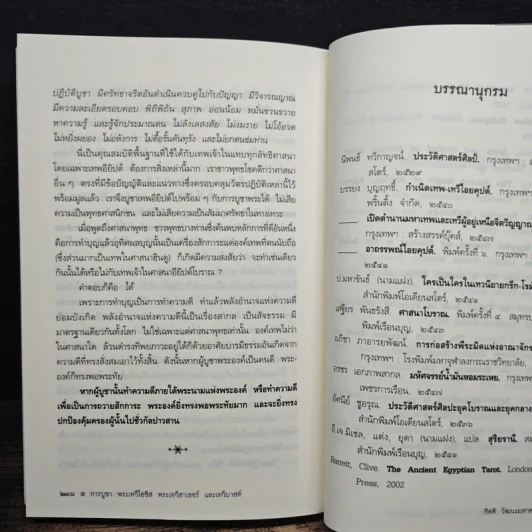 ปฏิบัติบูชา มีศรัทธาจริตอันดำเนินควบคู่ไปกับปัญญา มีวิจารณญาณ
มีความละเอียดรอบคอบ พิถีพิถัน สุภาพ อ่อนน้อม หมั่นขวนขวาย
หาความรู้ และรู้จักประมาณตน ไม่ลังเลสงสัย ไม่งมงาย ไม่โอ้อวด
ไม่หยิ่งผยอง ไม่อหังการ ไม่ดื้อรั้นดันทุรัง และไม่ยกตนข่มท่าน
นี่เป็นคุณสมบัติพื้นฐานที่ใช้ได้กับเทพเจ้าในแทบทุกลัทธิศาสนา
โดยเฉพาะเทพเจ้าอียิปต์ ต้องการสิ่งเหล่านี้มาก เราชาวพุทธโชคดีกว่าศาสนา
อื่น ๆ ตรงที่มีข้อบัญญัติและแนวทางซึ่งครอบคลุมวัตรปฏิบัติเหล่านี้ไว้
พร้อมมูลแล้ว เราจึงบูชาเทพอียิปต์ไปพร้อม ๆ กับการบูชาพระได้ ไม่เสีย
ความเป็นพุทธศาสนิกชน และไม่เสียความเป็นสัมมาศรัทธาในทางเทวะ
เมื่อพูดถึงศาสนาพุทธ ชาวพุทธบางท่านซึ่งค้นพบหลักการที่ดีอีกหนึ่ง
คือการทำบุญแล้วอุทิศผลบุญนั้นเป็นเครื่องสักการะแด่องค์เทพที่ตนนับถือ
(ซึ่งส่วนมากเป็นเทพในศาสนาฮินดู) ก็เกิดมีความสงสัยว่า จะทำเช่นเดียว
กันนั้นได้หรือไม่กับเทพเจ้าในศาสนาอียิปต์โบราณ ?
คำตอบก็คือ ได้
เพราะการทำบุญเป็นการทำความดี ทำแล้วพลังอำนาจแห่งความดี
ย่อมบังเกิด พลังอำนาจแห่งความดีนี้เป็นเรื่องสากล เป็นสัจธรรม มี
มาตรฐานเดียวกันทั้งโลก ไม่ใช่เฉพาะแต่ศาสนาพุทธเท่านั้น องค์เทพไม่ว่า
ในศาสนาใด ล้วนดำรงทิพยภาวะอยู่ได้ก็ด้วยอาศัยบารมีธรรมอันเกิดจาก
ความดีที่ทรงสั่งสมเอาไว้ทั้งสิ้น ดังนั้นหากผู้บูชาพระองค์เป็นคนดี พระ-
องค์ก็ทรงพอพระทัย
หากผู้บูชานั้นทำความดีภายใต้พระนามแห่งพระองค์ หรือทำความดี
เพื่อเป็นการถวายสักการะ พระองค์ยิ่งทรงพอพระทัยมาก และจะยิ่งทรง
ปกป้องคุ้มครองผู้นั้นไปชั่วกัลปาวสาน
๒๓๖ การบูชา พระเทวีไอซิส พระเทวีฮาเธอร์ และเทวีบาสต์
บรรณานุกรม
นิพนธ์ ทวีกาญจน์. ประวัติศาสตร์ศิลป์. กรุงเทพฯ :
สโตร์, ๒๕๒๙
บรรยง บุญฤทธิ์. กำเนิดเทพ-เทวีไอยคุปต์. กรุงเทพฯ
พริ้นติ้ง จำกัด, ๒๕๔๐
เปิดตำนานมหาเทพและเทวีผู้อยู่เหนือจิตวิญญาณ
กรุงเทพฯ : สร้างสรรค์บุ๊คส์, ๒๕๔๗
อาถรรพณ์ไอยคุปต์. พิมพ์ครั้งที่ ๖. กรุงเทพฯ :
๒๕๔๑
ป.มหาขันธ์ (นามแฝง). ใครเป็นใครในเทวนิยายกรีก-โรมัน
สำนักพิมพ์โอเดียนสโตร์, ๒๕๔๑
เสฐียร พันธรังสี. ศาสนาโบราณ. พิมพ์ครั้งที่ ๔. สมุทรปร
พิมพ์เรือนบุญ, ๒๕๔๑
อภิชา ภาอารยพัฒน์. การก่อสร้างพีระมิดแห่งอาณาจักร
กรุงเทพฯ : โรงพิมพ์มหาจุฬาลงกรณราชวิทยาลัย,
อรชร เอกภาพสากล. มหัศจรรย์น้ำมันหอมระเหย. กรุงเทพ
เพชรการเรือน, ๒๕๔๗
อัศนีย์ ชูอรุณ. ประวัติศาสตร์ศิลปะยุคโบราณและยุคกลาง
สำนักพิมพ์โอเดียนสโตร์, ๒๕๓๖
อี.เจ.มิเชล, แต่ง, ยุดา (นามแฝง), แปล. สุริยรานี.
พิมพ์เรือนบุญ, ๒๕๔๑
Barrett, Clive. The Ancient Egyptian Tarot. London
Press, 2002
กิตติ วัฒนะมหาตม์